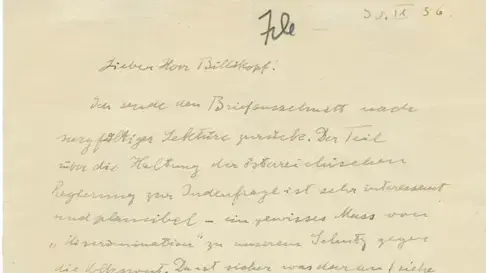 File
30. IX 36.
Lieber Herr Billikopf!
Ich sende den Briefausschnitt nach
sorgfältiger Lektüre zurück. Der Teil
über die Haltung der österreichischen
Regierung zur Judenfrage ist sehr interessant
und plausibel – ein gewisses Mass von
„discrimination" zu unserem Schutz gegen
die Volkswut. Da ist sicher was daran / siehe